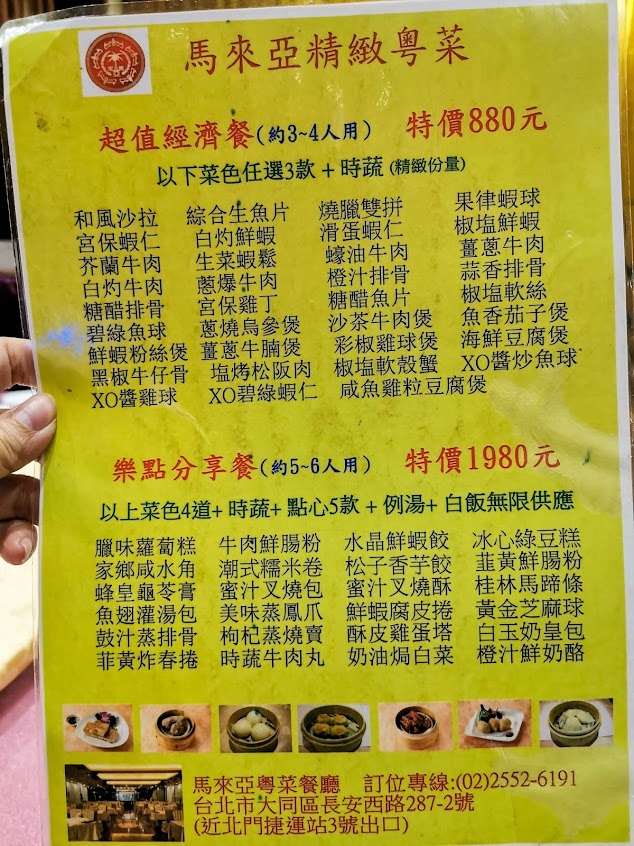 馬來亞精緻粵菜
超值經濟餐(約3~4人用) 特價880元
以下菜色任選3款 + 時蔬 (精緻份量)
和風沙拉 綜合生魚片 燒臘雙拼 果律蝦球
宮保蝦仁 白灼鮮蝦 滑蛋蝦仁 椒塩鮮蝦
芥蘭牛肉 生菜蝦鬆 蠔油牛肉 薑蔥牛肉
白灼牛肉 蔥爆牛肉 橙汁排骨 蒜香排骨
糖醋排骨 宮保雞丁 糖醋魚片 椒塩軟絲
碧綠魚球 蔥燒烏參煲 沙茶牛肉煲 魚香茄子煲
鮮蝦粉絲煲 薑蔥牛腩煲 彩椒雞球煲 海鮮豆腐煲
黑椒牛仔骨 塩烤松阪肉 椒塩軟殼蟹 XO醬炒魚球
XO醬雞球 XO碧綠蝦仁 咸魚雞粒豆腐煲
樂點分享餐(約5~6人用) 特價1980元
以上菜色4道+ 時蔬+ 點心5款 + 例湯+ 白飯無限供應
臘味蘿蔔糕 牛肉鮮腸粉 水晶鮮蝦餃 冰心綠豆糕
家鄉咸水角 潮式糯米卷 松子香芋餃 韮黃鮮腸粉
蜂皇龜苓膏 蜜汁叉燒包 蜜汁叉燒酥 桂林馬蹄條
魚翅灌湯包 美味蒸鳳爪 鮮蝦腐皮捲 黃金芝麻球
鼓汁蒸排骨 枸杞蒸燒賣 酥皮雞蛋塔 白玉奶皇包
菲黃炸春捲 時蔬牛肉丸 奶油焗白菜 橙汁鮮奶酪
馬來亞粵菜餐廳 訂位專線:(02)2552-6191
台北市大同區長安西路287-2號
(近北門捷運站3號出口)